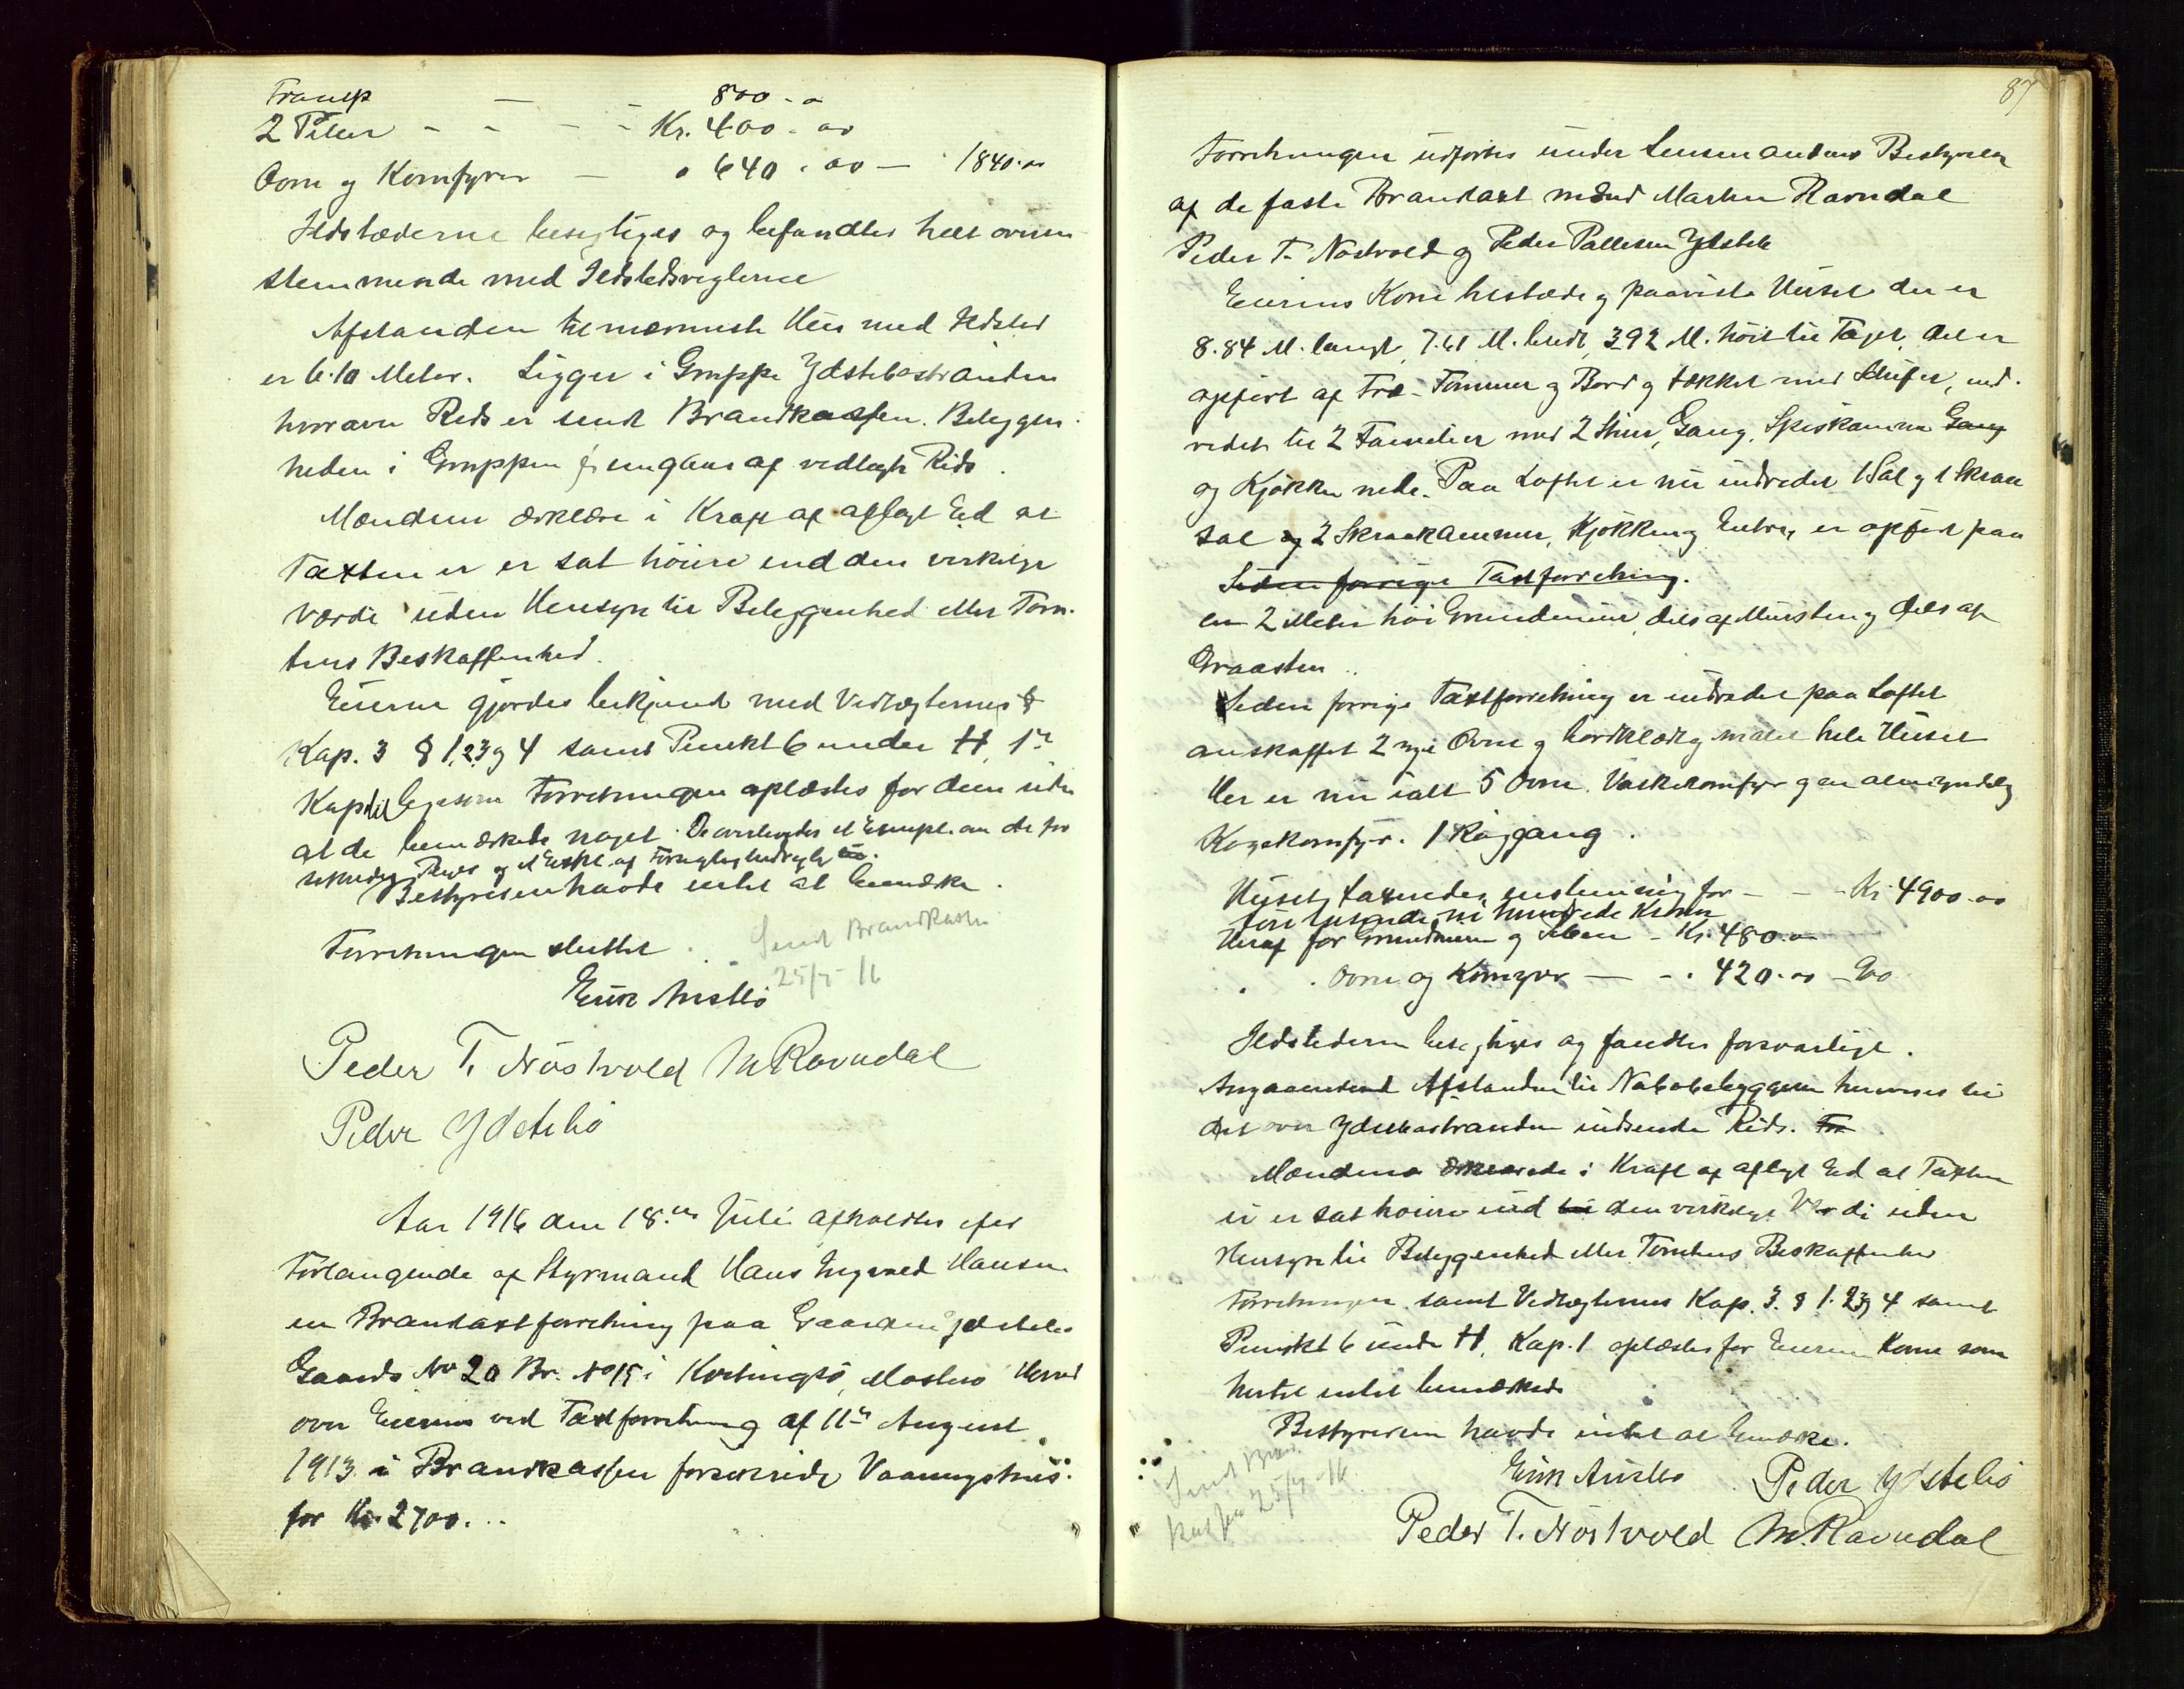 Transp — - 800 - o
2 Piber - - - - Kr. 400 - oo
Ovne og Komfyrer — „ 640 - oo — 1840.oo
Ildstæderne besigtiges og befandtes helt overen
stemmende med Ildstedsreglerne
Afstanden til nærmeste Hus med Ildsted
er 6.10 Meter. Ligger i Gruppe Ydstebøstranden
hvorover Rids er sendt Brandkassen. Beliggen-
heden i Gruppen fremgaar af vedlagte Rids.
Mændene erklære i Kraft af aflagt Ed at
Taxten er ei sat høiere end den virkelige
Værdi uden Hensyn til Beliggenhed eller Tom-
tens Beskaffenhed.
Eieren gjordes bekjendt med Vedtægternes
Kap. 3 § 1, 2, 3 og 4 samt Punkt 6 under H, 1ste
Kapitel ligesom Forretningen oplæstes for dem uden
at de bemærkede noget. De overleveredes et Exempl. av de for
og et Expl. af Forsigtighedsregler
Bestyrelsen havde intet at bemærke.
Forretningen sluttet.
Sendt Brandkassen
25/7 - 16
Eirik Austbø
Peder T. Nöstvold M Ravndal
Peder Ydstebö
Aar 1916 den 18de Juli afholdtes efter
Forlangende af Styrmand Hans Ingvald Hansen
en Brantaxtforretning paa Gaarden Ydstebø
Gaards No 20 Br. No 15 i Kvitingsø, Mosterø Herred
over Eierens ved Taxtforretning af 11te August
1913 i Brankassen forsikrede Vaaningshus
for Kr. 2700...
87
Forretningen udførtes under Lensmandens Bestyrelse
af de faste Brantaxtmænd Martin Ravndal
Peder T. Nöstvold og Peder Pallesen Ydstebø
Eierens Kone tilstæde og paaviste Huset der er
8.84 M. langt, 7.61 M. bredt, 3.92 M. höit til Taget, det er
opført af Træ - Tømmer og Bord og tækket med Skifer, ind-
redet til 2 Familier med 2 Stuer, Gang, Spiskammer Gang
og Kjøkken nede. Paa Loftet er nu indredet 1 Sal og 1 Skraa
sal og 2 Skraakammer, Kjøkken og Entre, er opført paa
Siden forrige Taxtforretning.
en 2 Meter høi Grundmur, dels af Mursten og dels af
Graasten..
Siden forrige Taxtforretning er indredet paa Loftet
anskaffet 2 nye Ovne og bordklædt og malet hele Huset
Her er nu ialt 5 Ovne. Vaskekomfyr og en almindelig
Kogekomfyr. 1 Røggang.
Huset taxeredes enstemmig for - - - Kr. 4900.oo
fire tusende ni hundrede Kroner
Heraf for Grundmur og Piben - Kr. 480.oo
" " Ovne og Komfyr — - " 420.oo - 900
Ildstederne besigtiges og fandtes forsvarlige.
Angaaende Afstanden til Nabobebyggelsen henvises til
det over Ydstebøstranden indsendte Rids. For
Mændene erklærede i Kraft af aflagt Ed at Taxten
ei er sat høiere end den virkelige Værdi uden
Hensyn til Beliggenhed eller Tomtens Beskaffenhed
Forretningen samt Vedtægternes Kap. 3. § 1. 2, 3 og 4 samt
Punkt 6 under H, Kap. 1 oplæstes for Eierens Kone som
hertil intet bemærkede
Bestyrelsen havde intet at bemærke.
Sendt Brand
kassen 25/7 - 16.
Eirik Austbø Peder Ydstebö
Peder T. Nöstvold M. Ravndal